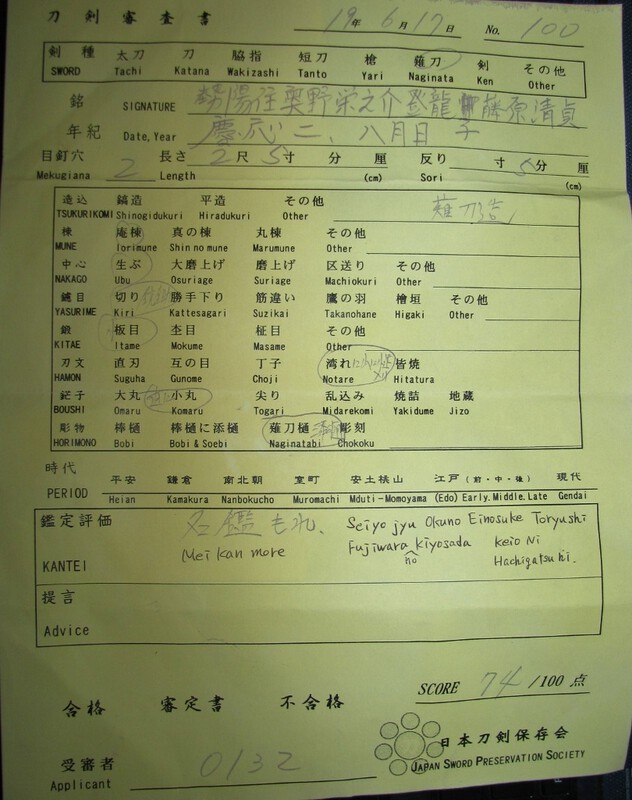 刀剣審査書 19年6月17日 No. 100
剣種 太刀 刀 脇指 短刀 槍 薙刀 剣 その他
SWORD Tachi Katana Wakizashi Tanto Yari Naginata Ken Other
銘 SIGNATURE 勢陽住奥野栄之介登龍 藤原清貞
年紀 Date, Year 慶応二、八月日 子
目釘穴 長さ 2尺5寸 分 厘 反り 寸5分 厘
Mekugiana 2 Length (cm) Sori (cm)
造込 鎬造 平造 その他 薙刀造
TSUKURIKOMI Shinogidukuri Hiradukuri Other
棟 庵棟 真の棟 丸棟 その他
MUNE Iorimune Shin no mune Marumune Other
中心 生ぶ 大磨上げ 磨上げ 区送り その他
NAKAGO Ubu Osuriage Suriage Machiokuri Other
鑢目 切り 勝手下り 筋違い 鷹の羽 檜垣 その他
YASURIME Kiri Kattesagari Suzikai Takanohane Higaki Other
鍛 板目 杢目 柾目 その他
KITAE Itame Mokume Masame Other
刃文 直刃 互の目 丁子 湾れ 皆焼
HAMON Suguha Gunome Choji Notare Hitatura
鋩子 大丸 小丸 尖り 乱込み 焼詰 地蔵
BOUSHI Omaru Komaru Togari Midarekomi Yakidume Jizo
彫物 棒樋 棒樋に添樋 薙刀樋 彫刻
HORIMONO Bobi Bobi & Soebi Naginatabi Chokoku
時代 平安 鎌倉 南北朝 室町 安土桃山 江戸(前・中・後) 現代
PERIOD Heian Kamakura Nanbokucho Muromachi Mduti-Momoyama (Edo) Early. Middle. Late Gendai
鑑定評価 名鑑もれ、 Seiyo jyu Okuno Einosuke Toryushi
KANTEI Mei kan more Fujiwara Kiyosada Keio Ni
no Hachigatsu hi.
提言
Advice
合格 審定書 不合格 SCORE 74 /100 点
受審者 0132 日本刀剣保存会
Applicant JAPAN SWORD PRESERVATION SOCIETY